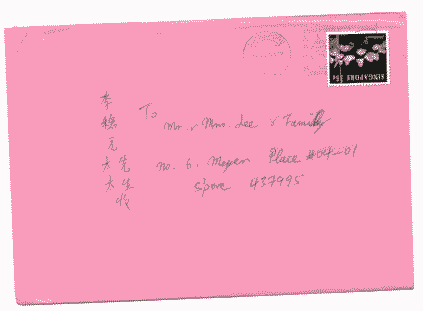 李
元
夫先
夫生
收
To
Mr. & Mrs. Lee & Family
no. 6, Meyer Place #04-01
S'pore 437995
SINGAPORE